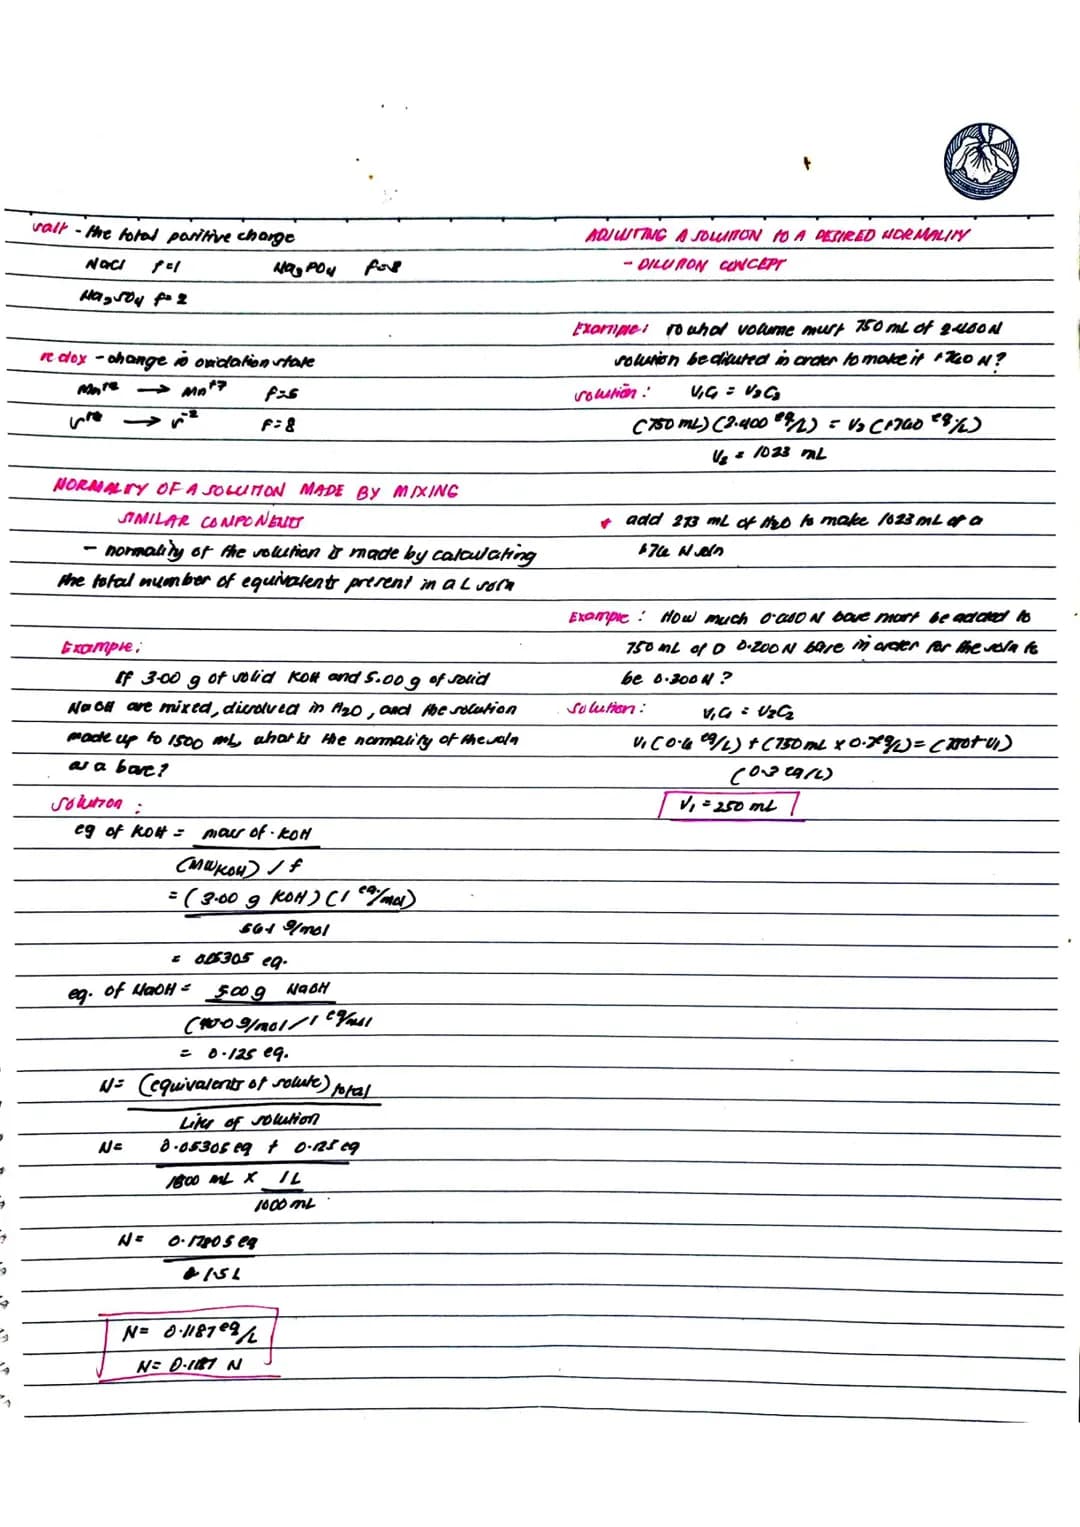 salt - the total positive charge
NaCl f=1 Na3PO4 f=3
Na2SO4 f=2
redox - change in oxidation state
Mn+2 → Mn+7 f=5
S+6 → S-2 f=8
NORMALITY OF A SOLUTION MADE BY MIXING
SIMILAR COMPONENTS
- normality of the solution is made by calculating
the total number of equivalents present in a L soln
Example:
If 3.00 g of solid KOH and 5.00 g of solid
NaOH are mixed, dissolved in H2O, and the solution
made up to 1500 mL, what is the normality of the soln
as a base?
Solution:
eq of KOH = mass of KOH
(MWKOH) / f
= (3.00 g KOH) (1 eq/mol)
56.1 g/mol
= 0.05305 eq.
eq. of NaOH = 5.00 g NaOH
(40.0 g/mol / 1 eq/mol
= 0.125 eq.
N= (equivalents of solute) total
Liter of solution
N= 0.05305 eq + 0.125 eq
1500 mL x 1L
1000 mL
N= 0.17805 eq
1.5 L
N= 0.1187 eq/L
N= 0.1187 N
ADJUSTING A SOLUTION TO A DESIRED NORMALITY
- DILUTION CONCEPT
Example: to what volume must 750 mL of 2.400 N
solution be diluted in order to make it 1.760 N?
solution: V1C1 = V2C2
(750 mL) (2.400 eq/L) = V2 (1.760 eq/L)
V2 = 1023 mL
* add 273 mL of H2O to make 1023 mL of a
1.76 N soln
Example: How much 0.600 N base must be added to
750 mL of a 0.200 N base in order for the soln to
be 0.300 N?
Solution: V1C1 = V2C2
V1 (0.6 eq/L) + (750 mL x 0.2 eq/L) = (750 + V1)
(0.3 eq/L)
V1 = 250 mL